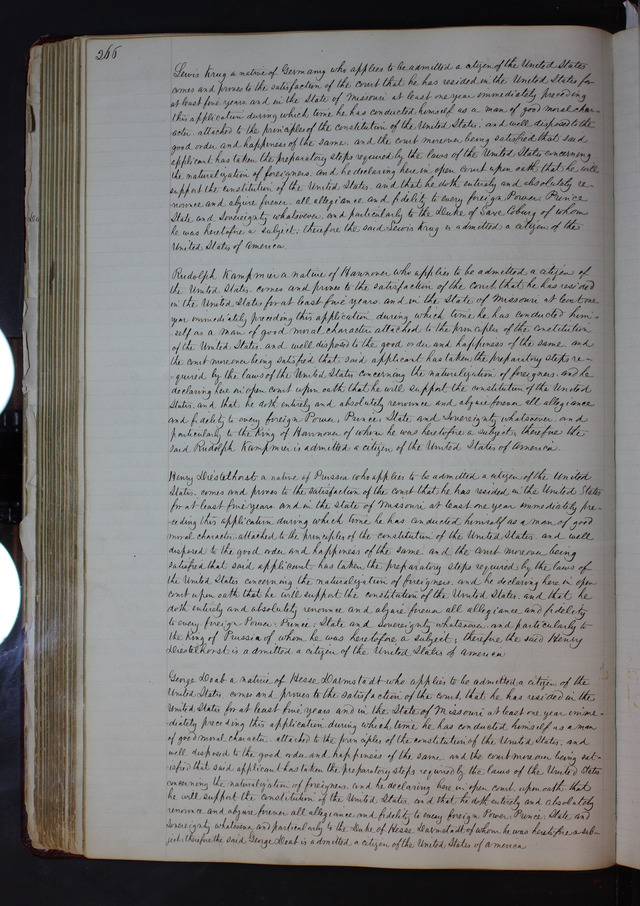 266
Lewis Krug a native of Germany who applies to be admitted a citizen of the United States
comes and proves to the satisfaction of the court that he has resided in the United States for
at least five years and in the State of Missouri at least one year immediately preceding
this application during which time he has conducted himself as a man of good moral char-
acter attached to the principles of the constitution of the United States; and well disposed to the
good order and happiness of the same. and the court moreover being satisfied that said
applicant has taken the preparatory steps required by the laws of the United States concerning
the naturalization of foreigners. and he declaring here in open court upon oath, that he will
support the constitution of the United States. and that he doth entirely and absolutely re-
nounce and abjure forever all allegiance and fidelity to every foreign Power Prince
State and Sovereignty whatsoever and particularly to the Duke of Saxe Coburg of whom
he was heretofore a subject; therefore the said Lewis Krug is admitted a citizen of the
United States of America
Rudolph Kampmier a native of Hannover who applies to be admitted a citizen of
the United States. comes and proves to the satisfaction of the court that he has resided
in the United States for at least five years. and in the State of Missouri at least one
year immediately preceding this application during which time he has conducted him-
self as a man of good moral character attached to the principles of the constitution
of the United States. and well disposed to the good order and happiness of the same. and
the court moreover being satisfied that said applicant has taken the preparatory steps re-
quired by the laws of the United States concerning the naturalization of foreigners. and he
declaring here in open court upon oath that he will support the constitution of the United
States. and that he doth entirely and absolutely renounce and abjure forever all allegiance
and fidelity to every foreign Power, Prince State and Sovereignty whatsoever and
particularly to the King of Hannover of whom he was heretofore a subject; therefore the
said Rudolph Kampmier is admitted a citizen of the United States of America.
Henry Driestelhorst a native of Prussia who applies to be admitted a citizen of the United
States. comes and proves to the satisfaction of the court that he has resided in the United States
for at least five years and in the state of Missouri at least one year immediately pre-
ceding this application during which time he has conducted himself as a man of good
moral character, attached to the principles of the constitution of the United States and well
disposed to the good order and happiness of the same and the court moreover being
satisfied that said applicant has taken the preparatory steps required by the laws of
the United States concerning the naturalization of foreigners. and he declaring here in open
court upon oath that he will support the constitution of the United States. and that he
doth entirely and absolutely renounce and abjure forever all allegiance and fidelity
to every foreign Power; Prince; State and Sovereignty whatsoever and particularly to
the King of Prussia of whom he was heretofore a subject; therefore the said Henry
Driestelhorst is admitted a citizen of the United States of America
George Doab a native of Hesse Darmstadt who applies to be admitted a citizen of the
United States comes and proves to the satisfaction of the court that he has resided in the
United States for at least five years and in the State of Missouri at least one year imme-
diately preceding this application during which time he has conducted himself as a man
of good moral character. attached to the principles of the constitution of the United States. and
well disposed to the good order and happiness of the same and the court moreover being sat-
isfied that said applicant has taken the preparatory steps required by the laws of the United States
concerning the naturalization of foreigners. and he declaring here in open court upon oath that
he will support the constitution of the United States. and that he doth entirely and absolutely
renounce and abjure forever all allegiance and fidelity to every foreign Power, Prince State and
Sovereignty whatsoever and particularly to the Duke of Hesse Darmstadt of whom he was heretofore a sub-
ject; therefore the said George Doab is admitted a citizen of the United States of America